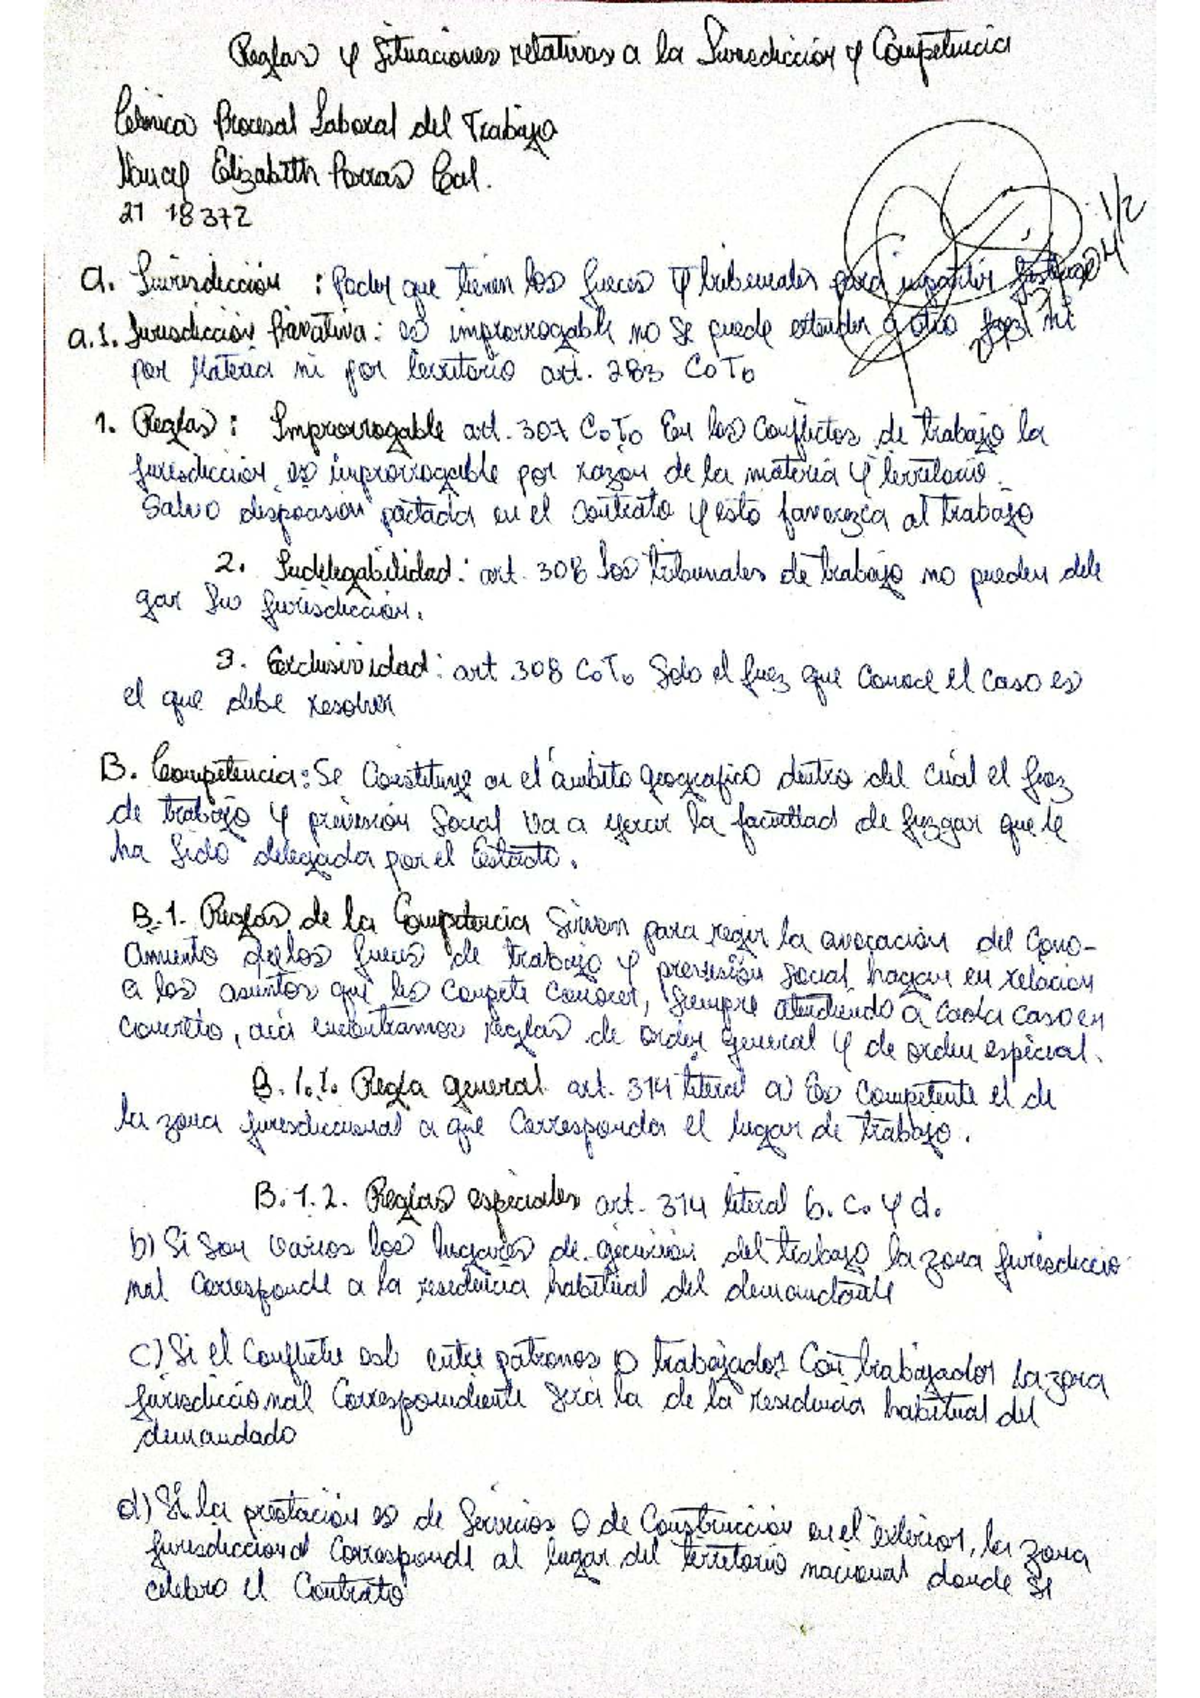 Reglas y Situaciones relativas a la Jurisdicción y Competencia
Clínica Procesal Laboral del Trabajo
Nancy Elizabeth Porras Cal.
21 18372
1/2
A. Jurisdicción : Poder que tienen los jueces y tribunales para impartir justicia
a.1. Jurisdicción Privativa : es improrrogable no se puede extender a otro juez ni
por Materia ni por territorio art. 283 CoTo
1. Reglas : Improrrogable art. 307 CoTo En los Conflictos de trabajo la
jurisdicción es improrrogable por razón de la materia y territorio.
Salvo disposición pactada en el contrato y esto favorezca al trabajo
2. Indelegabilidad : art. 308 los tribunales de trabajo no pueden dele
gar su jurisdicción.
3. Exclusividad : art 308 CoTo Solo el juez que conoce el caso es
el que debe resolver
B. Competencia : Se Constituye en el ámbito geografico dentro del cual el juez
de trabajo y previsión Social va a ejercer la facultad de juzgar que le
ha sido delegada por el Estado.
B.1. Reglas de la Competencia Sirven para regir la avocación del Cono-
amiento de los jueces de trabajo y previsión Social, hagan en relación
a los asuntos que les compete conocer, siempre atendiendo a cada caso en
concreto, acá encontramos reglas de orden general y de orden especial.
B.1.1. Regla general art. 314 literal a) Es Competente el de
la zona jurisdiccional a que Corresponda el lugar de trabajo.
B.1.2. Reglas especiales art. 314 literal b. c. y d.
b) Si Son varios los lugares de ejecución del trabajo la zona jurisdiccio
nal Corresponde a la residencia habitual del demandante
c) Si el Conflicto es entre patronos o trabajadores Con trabajador La zona
jurisdiccional Correspondiente Será la de la residencia habitual del
demandado
d) Si la prestación es de Servicios o de Construcción en el exterior, la zona
jurisdiccional Corresponde al lugar del territorio nacional donde se
celebro el Contrato